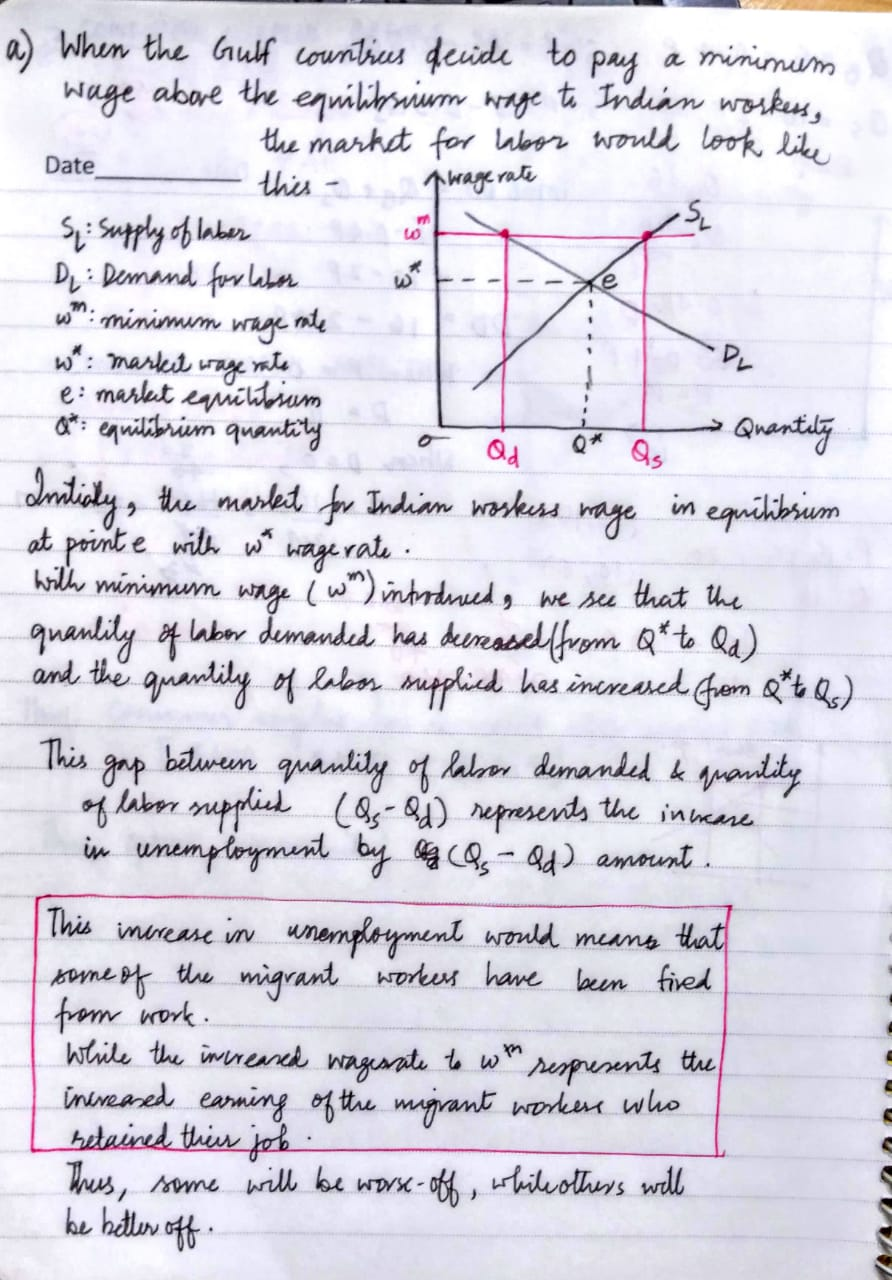 a) When the Gulf countries decide to pay a minimum
wage above the equilibrium wage to Indian workers,
the market for labor would look like
Date
this -
wage rate
S_L : Supply of labor
D_L : Demand for labor
w^m : minimum wage rate
w* : market wage rate
e : market equilibrium
Q* : equilibrium quantity
w^m
w*
S_L
e
D_L
o
Q_d
Q*
Q_s
Quantity
Initialy, the market for Indian workers wage in equilibrium
at point e with w* wage rate.
With minimum wage (w^m) introduced, we see that the
quantity of labor demanded has decreased (from Q* to Q_d)
and the quantity of labor supplied has increased (from Q* to Q_s)
This gap between quantity of labor demanded & quantity
of labor supplied (Q_s - Q_d) represents the increase
in unemployment by (Q_s - Q_d) amount.
This increase in unemployment would means that
some of the migrant workers have been fired
from work.
While the increased wagerate to w^m respresents the
increased earning of the migrant workers who
retained their job.
Thus, some will be worse-off, while others will
be better off.